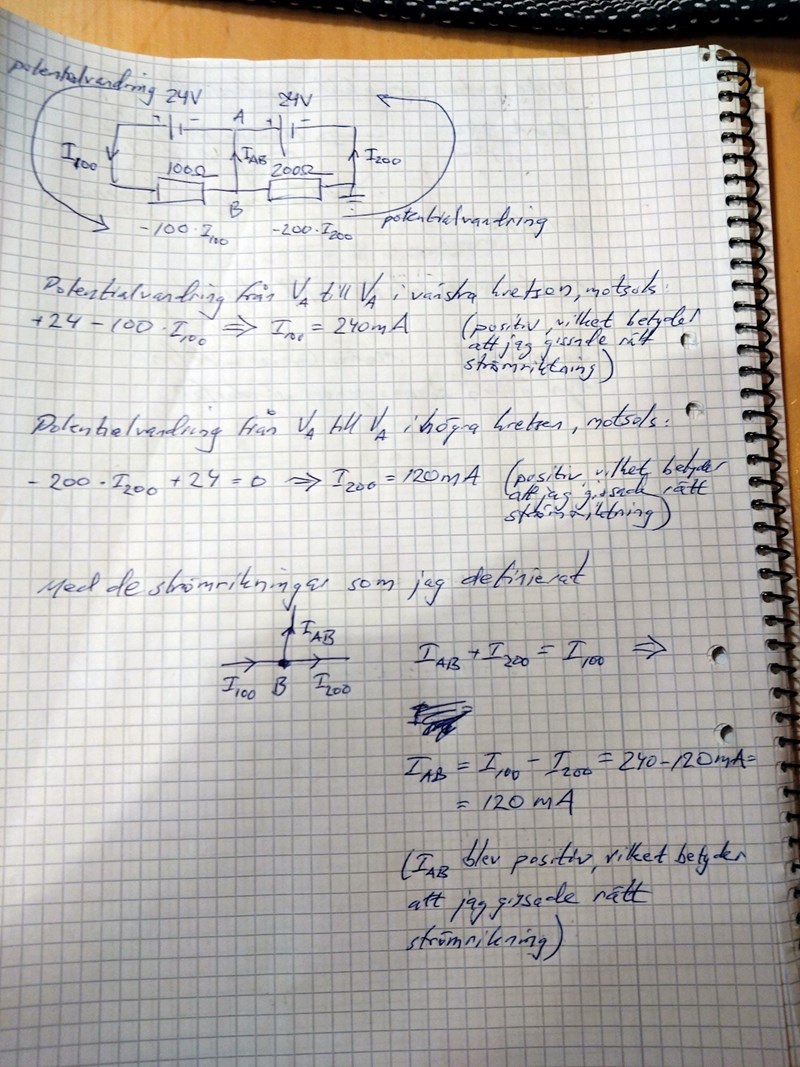 potentialvandring
24V 24V
+ - A + -
I₁₀₀ 100Ω I_AB 200Ω I₂₀₀
B
-100·I₁₀₀ -200·I₂₀₀ potentialvandring
Potentialvandring från V_A till V_A i vänstra kretsen, motsols:
+24 - 100·I₁₀₀ ⇒ I₁₀₀ = 240mA (positiv, vilket betyder
att jag gissade rätt
strömriktning)
Potentialvandring från V_A till V_A i högra kretsen, motsols:
-200·I₂₀₀ + 24 = 0 ⇒ I₂₀₀ = 120mA (positiv, vilket betyder
att jag gissade rätt
strömriktning)
Med de strömrikningar som jag definierat
I_AB
I₁₀₀ B I₂₀₀
I_AB + I₂₀₀ = I₁₀₀ ⇒
I_AB = I₁₀₀ - I₂₀₀ = 240-120mA=
= 120 mA
(I_AB blev positiv, vilket betyder
att jag gissade rätt
strömrikning)